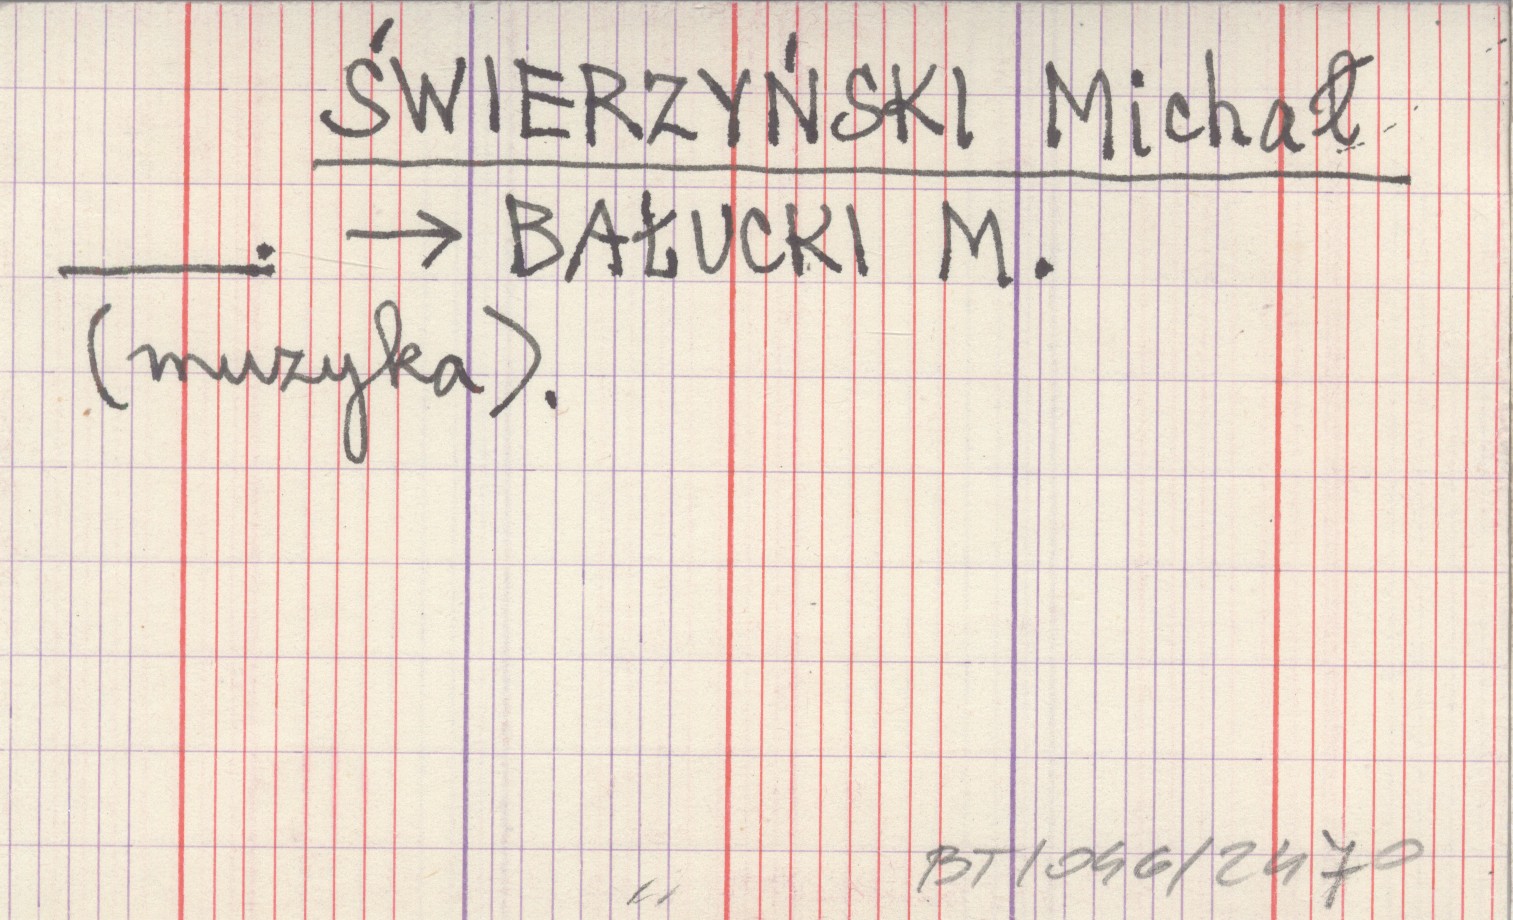 ŚWIERZYŃSKI Michał
____: → BAŁUCKI M.
(muzyka).
BT/046/2470